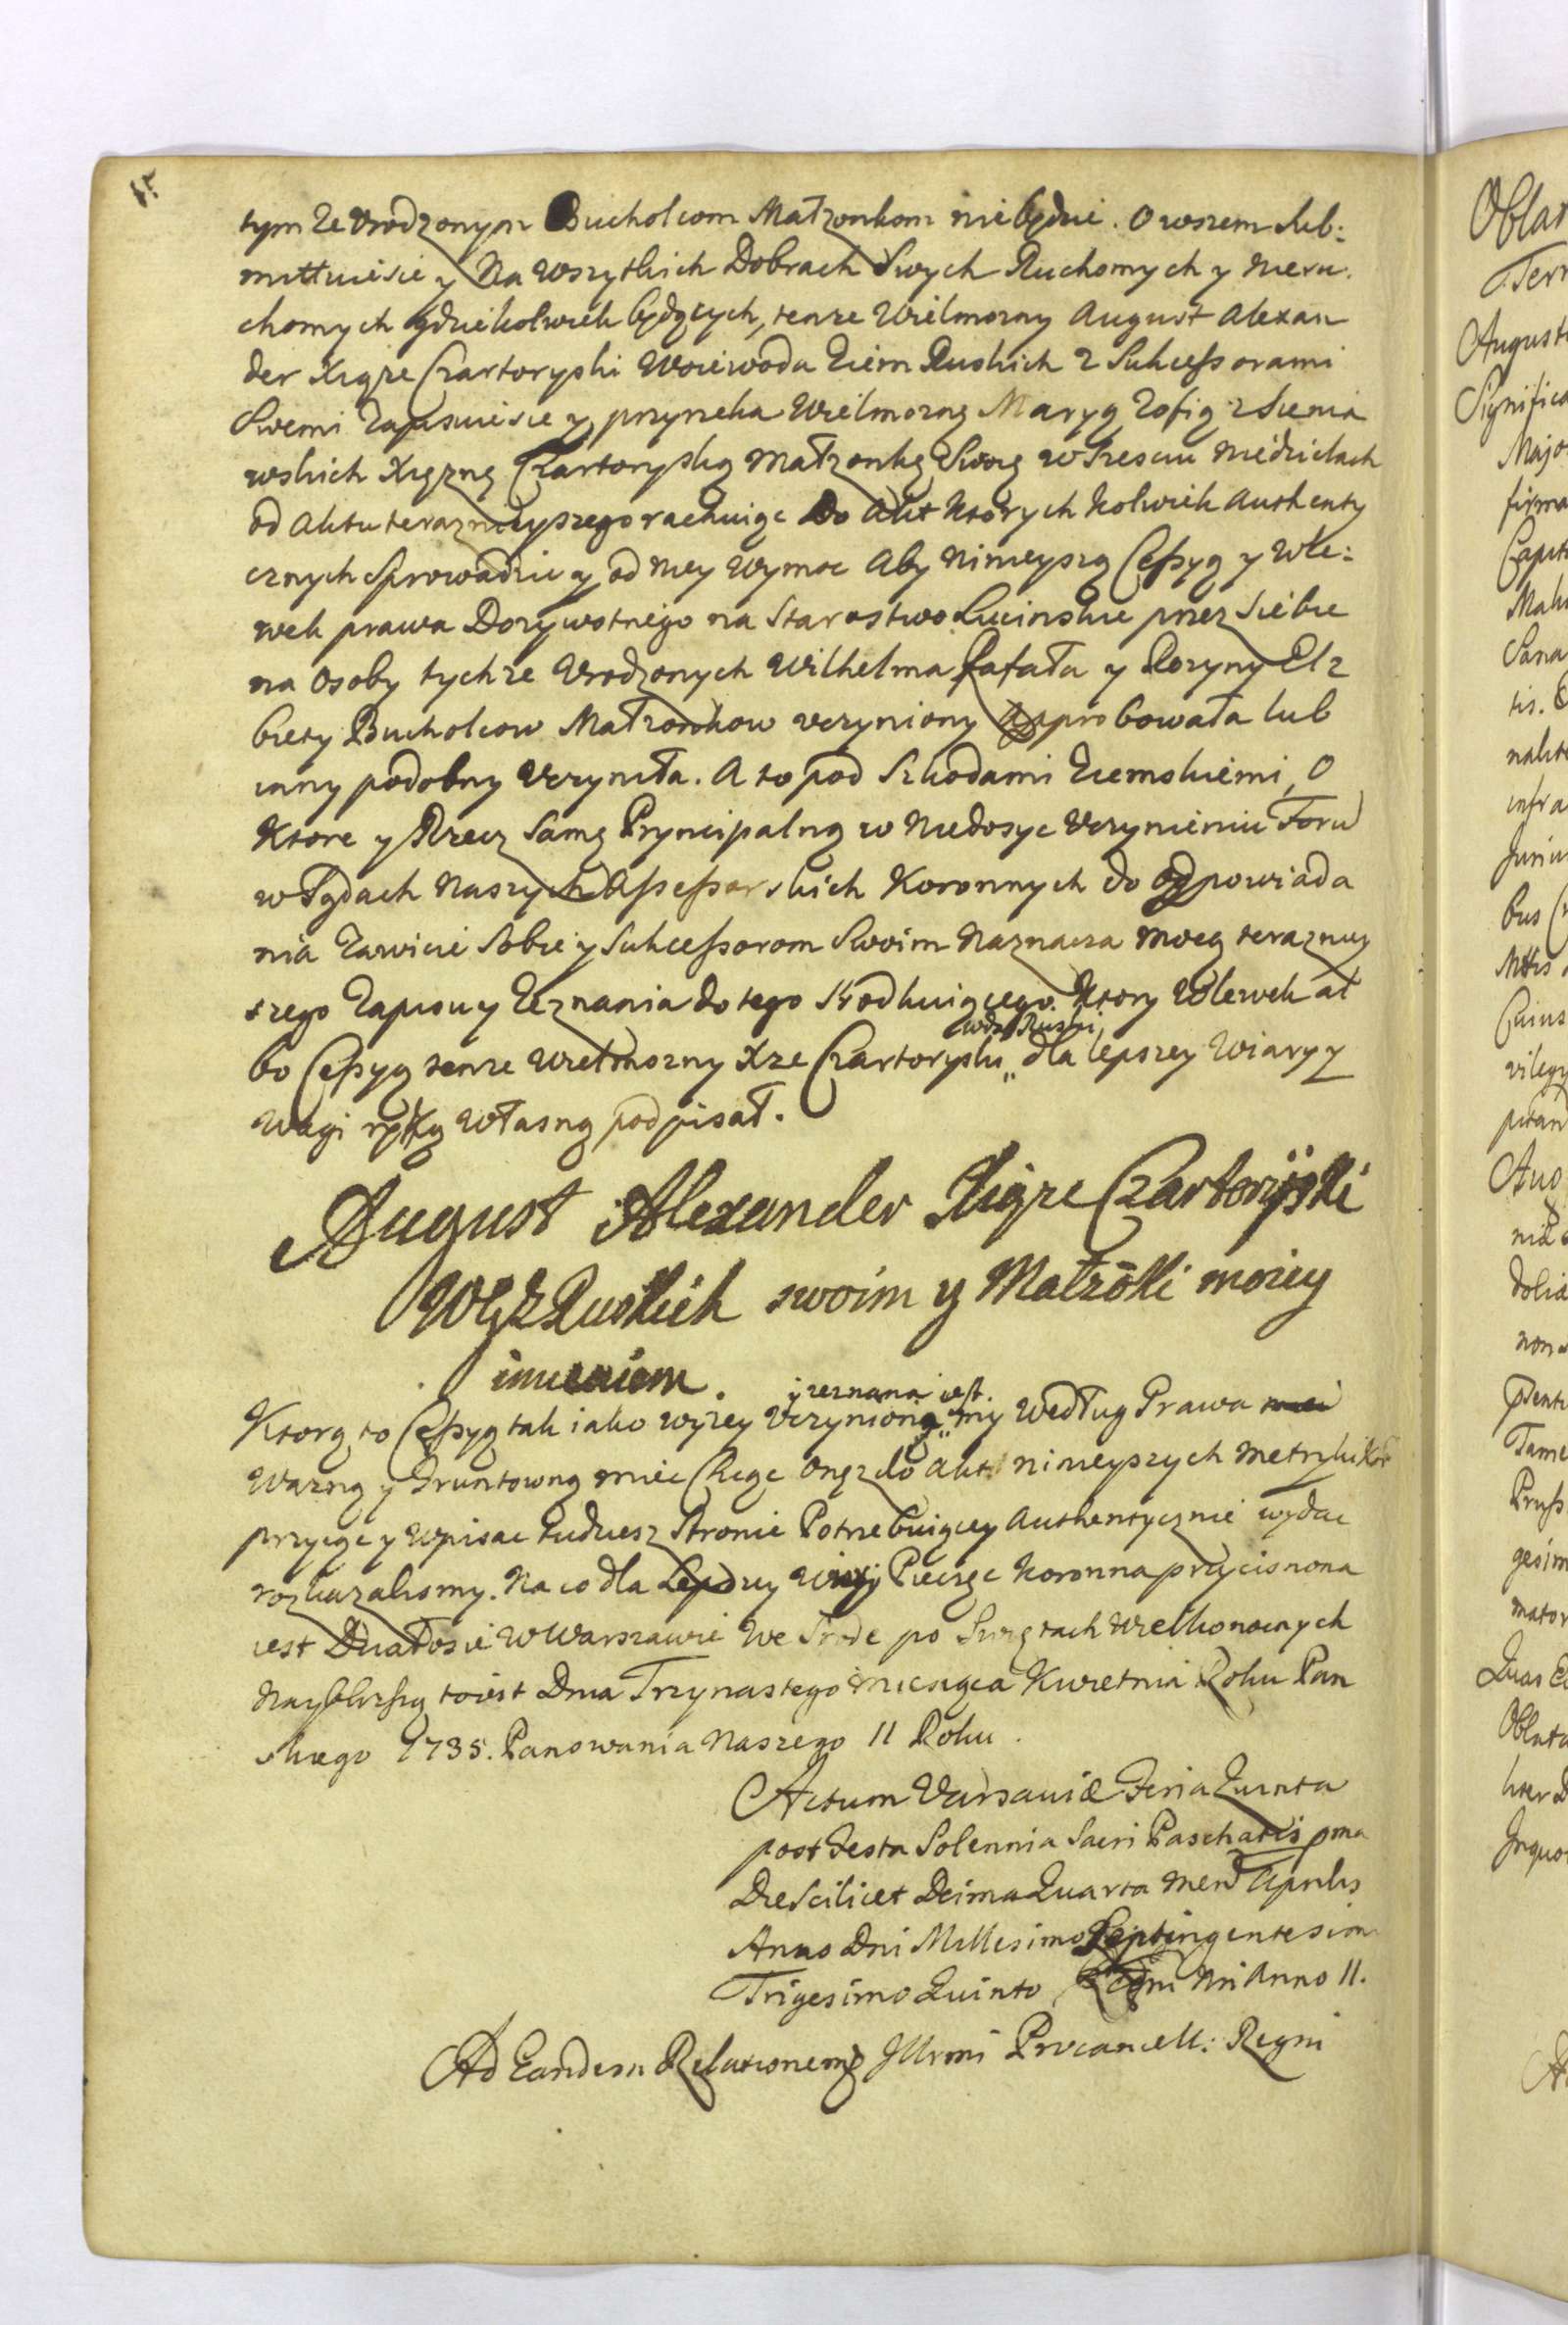 tym że Vrodzonym Bucholcom Małzonkom niebędzie. Owszem Sub:
mittuiesie y Na Wszytkich Dobrach Swych Ruchomych y Nieru.
chomych gdziekolwiek będących, tenze Wielmozny August Alexan
der Xiąze Czartoryski Woiewoda Ziem Ruskich z Sukcessorami
Swemi Zapisuiesie y przyrzeka Wielmozną Maryą Zofią z Sienia
wskich Xięznę Czartoryską Małzonkę Swoię w Szesciu Niedzielach
od Aktu teraznieyszego rachuiąc Do Akt Ktorych Kolwiek Authenty
cznych Sprowadzic y od Niey Wymoc Aby Ninieyszą Cessyą y Wle:
wek prawa Dozywotniego na Starostwo Lucinskie przez Siebie
na Osoby tychze Vrodzonych Wilhelma Rafała y Rozyny Elz
biety Bucholcow Małzonkow vczyniony approbowała lub
inny podobny Vczyniła. A to pod Szkodami Ziemskiemi, O
Ktore y Rzecz Samę Pryncipalną w Niedosyc Vczynieniu Foru
w Sądach Naszych Assessorskich Koronnych do odpowiada
nia Zawicie Sobie y Sukcessorom Swoim Naznacza mocą terazniey
szego Zapisu y Zeznania do tego Srodkuiącego. Ktory Wlewek al
bo Cessyą tenze Wielmozny Xze Czartoryski „ dla lepszey Wiary y
wda Ruski
Wagi ręką Własną podpisał.
August Alexander Xiąze Czartoryski
W Z Ruskich swoim y Małzõki moiey
imieniem.
y zeznana iest.
Ktorą to Cessyą tak iako wyzey Vczynioną „ my Według Prawa
Wazną y Gruntowną miec Chcąc Onęz do Akt Ninieyszych Metryki Kor
przyiąc y Wpisac tudziesz Stronie Potrzebuiącey Authentycznie wydac
rozkazalismy. Na co dla Lepszey Wiary Pieczęc Koronna przycisnona
iest Działosie w Warszawie We Srode po Swiętach Wielkonocnych
Nayblizszą toiest Dnia Trzynastego Miesiąca Kwietnia Roku Pan
skiego 1735. Panowania Naszego II Roku.
Actum Varsaviæ Feria Quinta
post Festa Solennia Sacri Paschatis pma
Die Scilicet Decima Quarta Mens Aprilis
Anno Dni Millesimo Septingentesimo
Trigesimo Quinto, Regni Nri Anno II.
Ad Eandem Relationem Illrmi Procancell: Regni